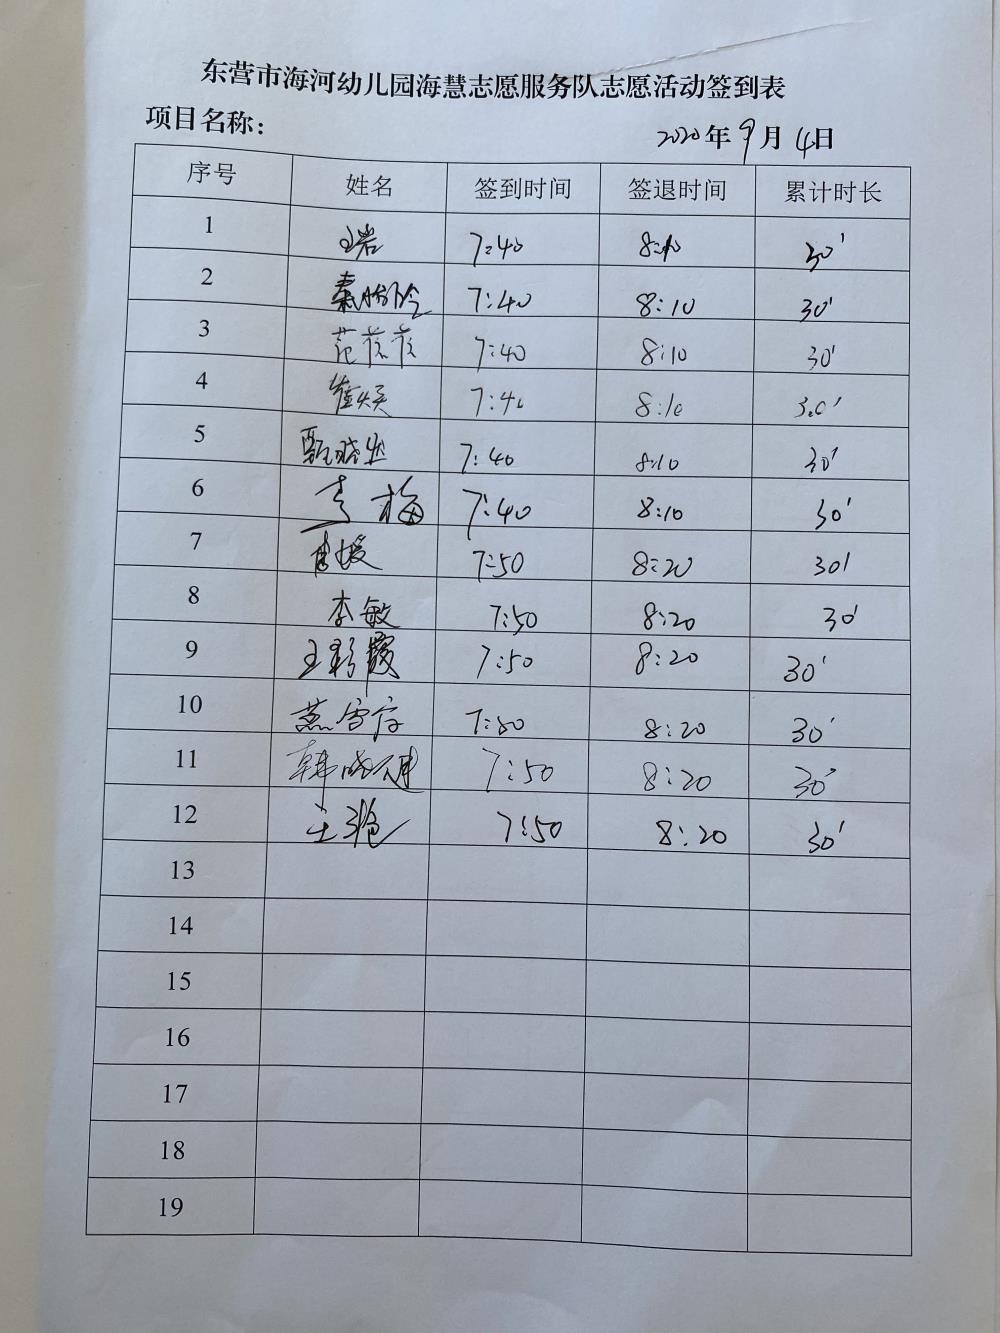 东营市海河幼儿园海慧志愿服务队志愿活动签到表
项目名称：
2020年9月4日
序号 姓名 签到时间 签退时间 累计时长
1 王岩 7:40 8:10 30'
2 秦 7:40 8:10 30'
3 范 7:40 8:10 30'
4 崔 7:40 8:10 30'
5 甄晓 7:40 8:10 30'
6 李梅 7:40 8:10 30'
7 7:50 8:20 30'
8 李敏 7:50 8:20 30'
9 王彩霞 7:50 8:20 30'
10 燕雪 7:50 8:20 30'
11 韩晓 7:50 8:20 30'
12 王艳 7:50 8:20 30'
13
14
15
16
17
18
19